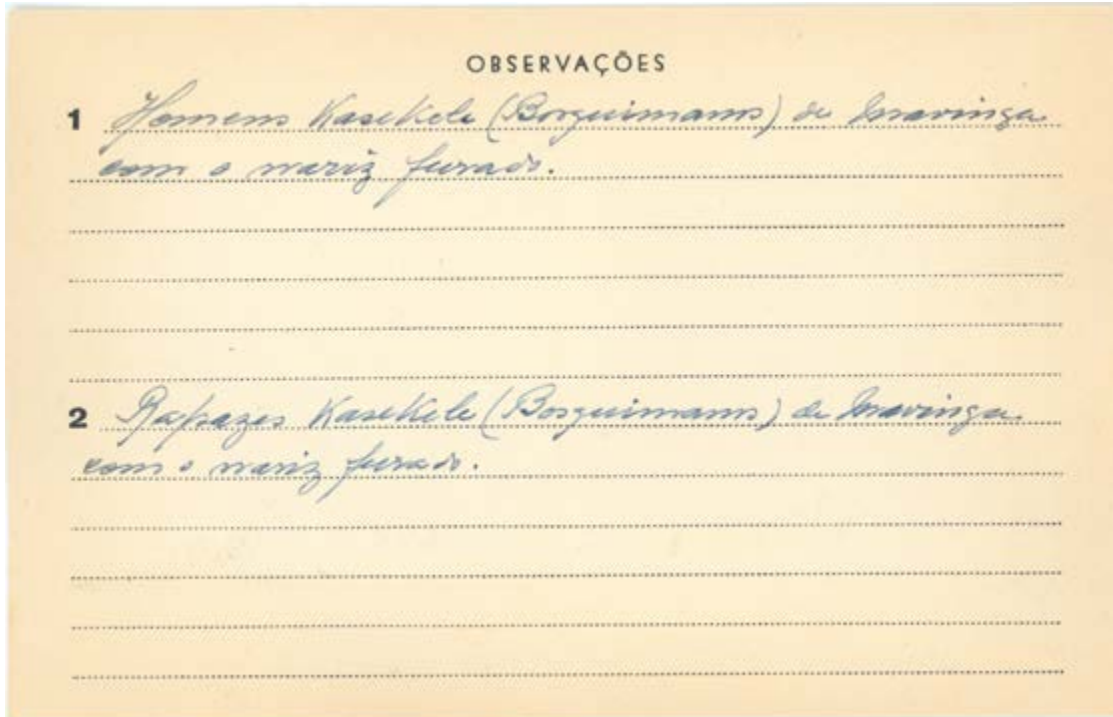 OBSERVAÇÕES
1 Homens Kasekele (Bosquimanos) de Mavinga
com o nariz furado.
2 Rapazes Kasekele (Bosquimanos) de Mavinga
com o nariz furado.